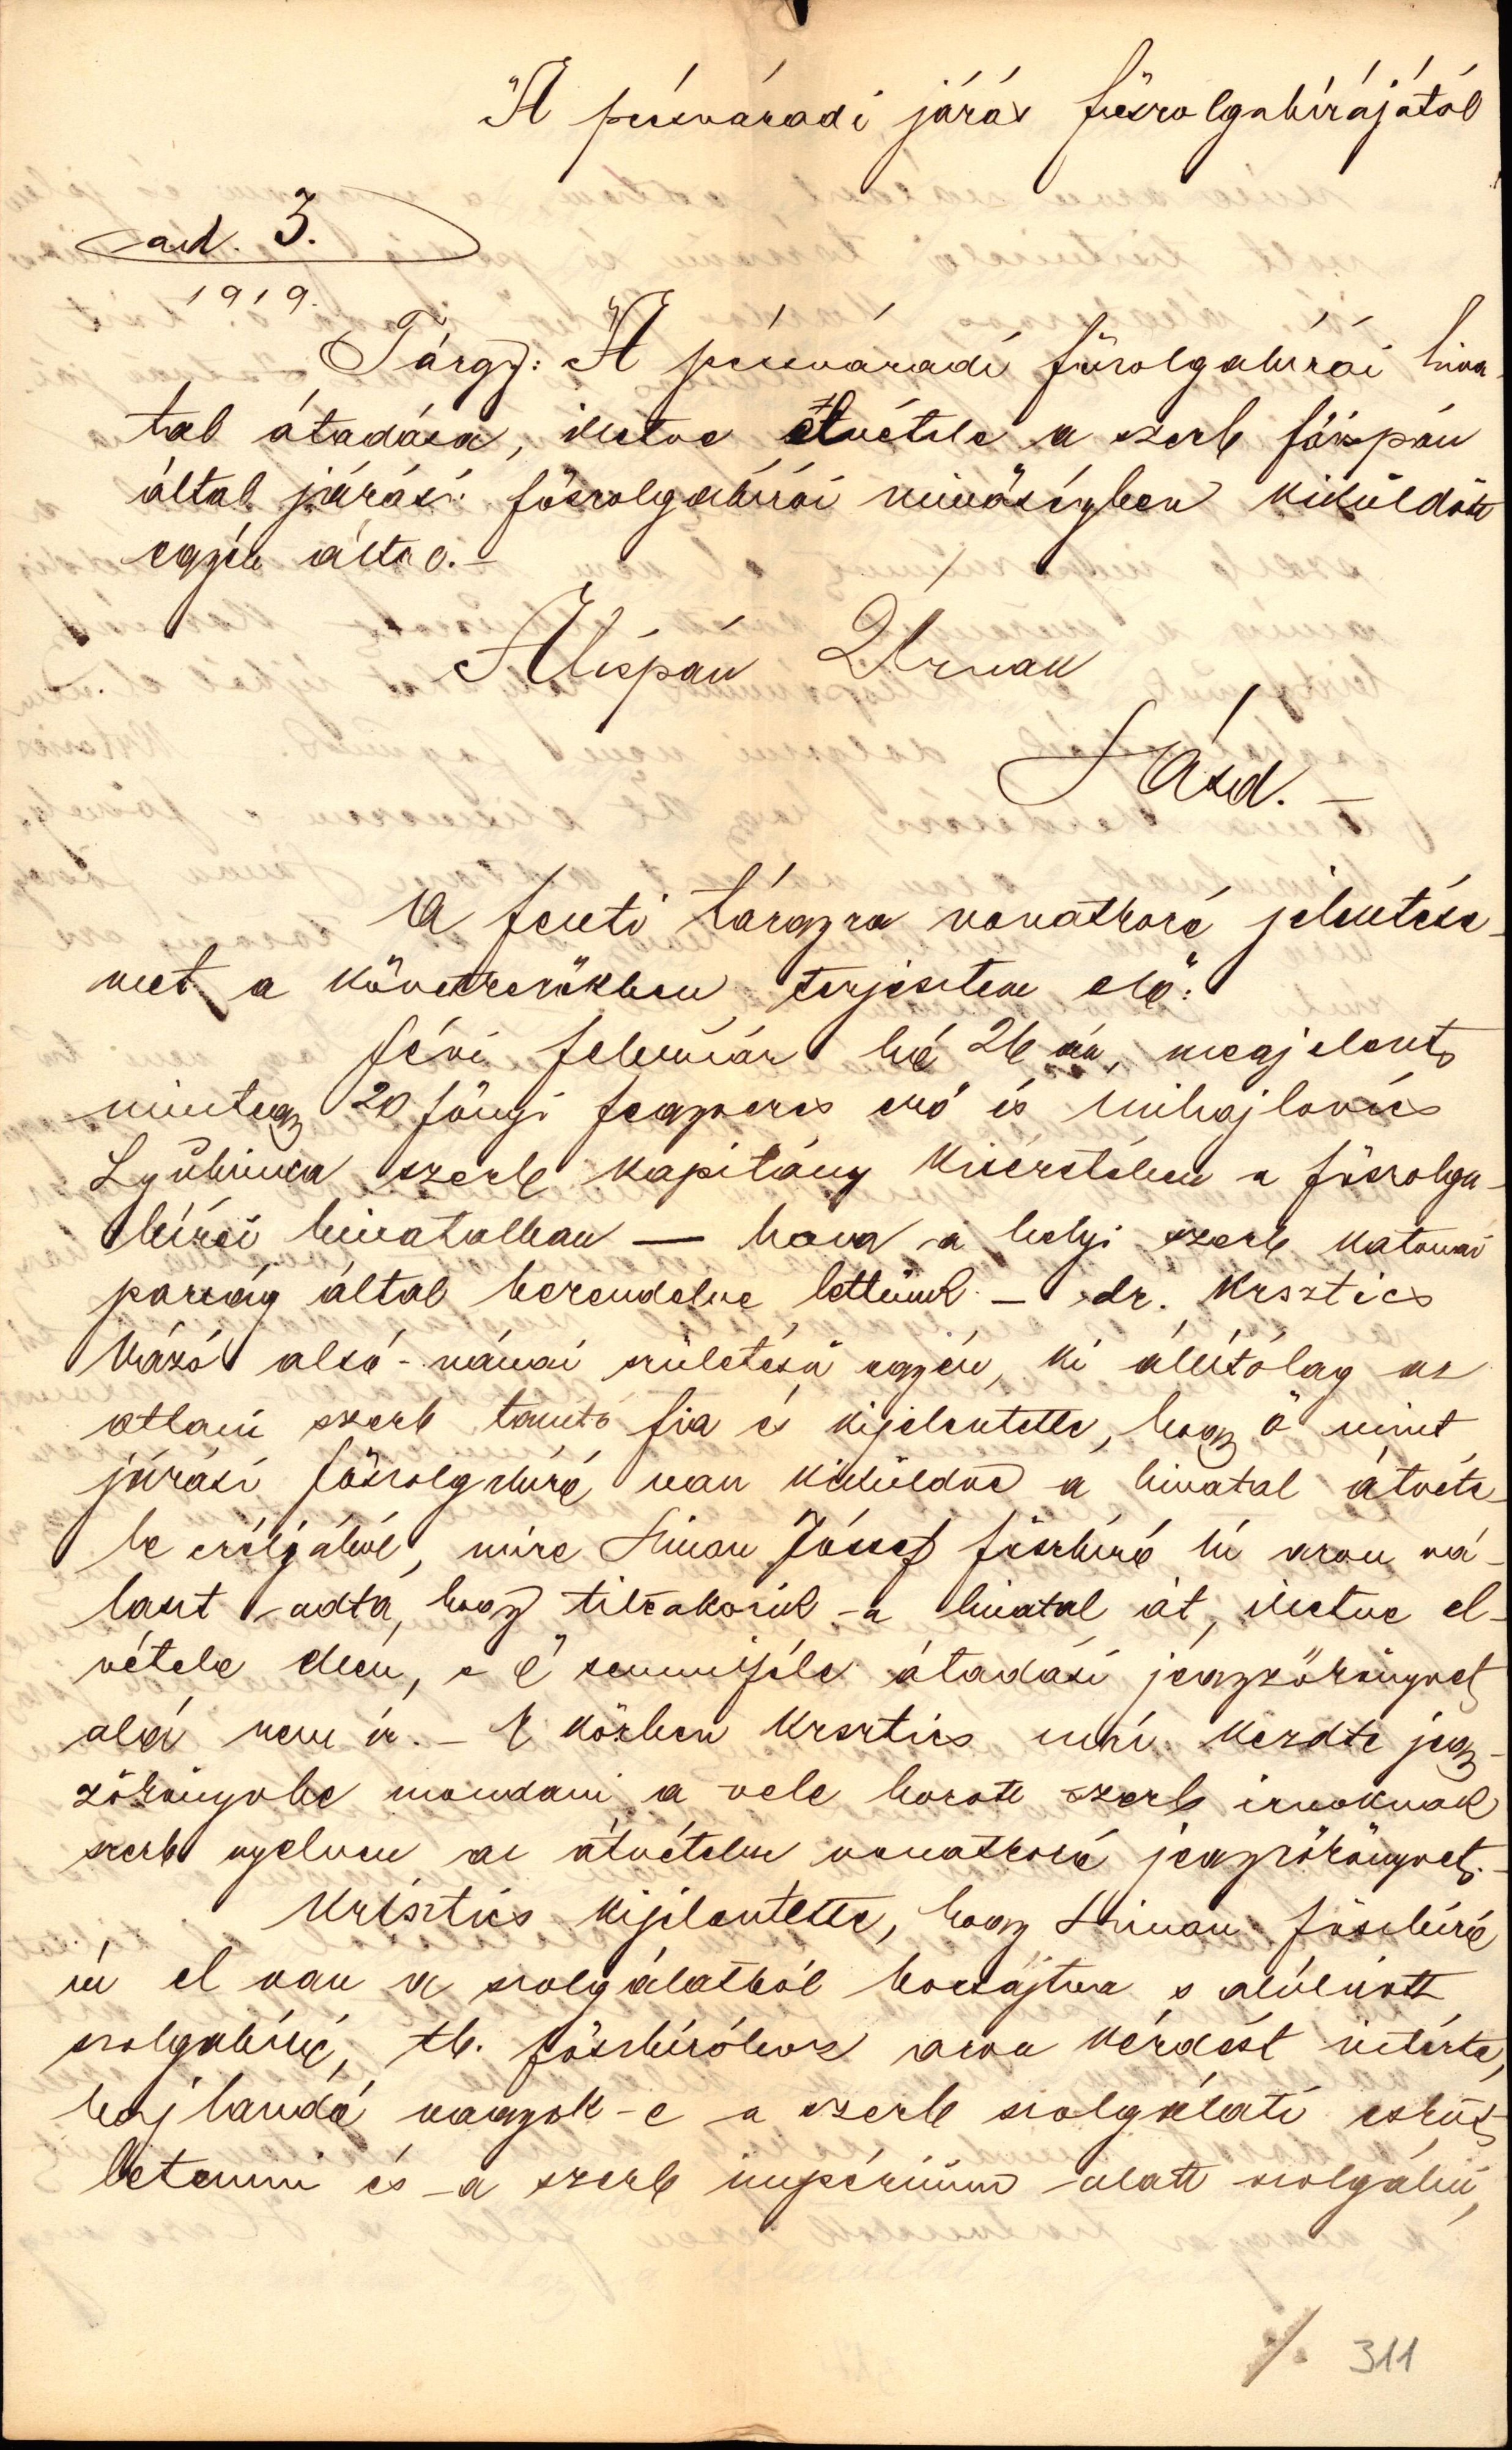 A pécsváradi járás főszolgabírájától
ad. 3.
1919.
Tárgy: A pécsváradi főszolgabírói hiva-
tal átadása, illetve elvétele a szerb főispán
által járási főszolgabírói minőségben kiküldött
egyén által.-
Alispán Úrnak
Sásd. -
A fenti tárgyra vonatkozó jelentése-
met a következőkben terjesztem elő:
f. évi február hó 26 án, megjelent
mintegy 20 főnyi fegyveres erő és Mihajlovics
Lyubinka szerb kapitány kíséretében a főszolga-
bírói hivatalban — hova a helyi szerb katonai
parság által berendelve lettünk - dr. Krsztics
Lázó alsó-nánai születésü egyén, ki állítólag az
ottani szerb tanító fia és kijelentette, hogy ő mint
járási főszolgabíró van kiküldve a hivatal átvéte-
le céljából, mire Simon József főszbíró úr azon vá-
laszt adta, hogy tiltakozik a hivatal át, illetve el-
vétele ellen, s ő semmiféle átadási jegyzőkönyvet
alá nem ír. - E közben Krsztics úr kezdte jegy-
zőkönyvbe mondani a vele hozott szerb irnoknak
szerb nyelven az átvételre vonatkozó jegyzőkönyvet.-
Krisztics kijelentette, hogy Simon főszbíró
úr el van a szolgálatból bocsájtva s alúlírott
szolgabíró, tb. főszbíróhoz azon kérdést intézte,
hajlandó vagyok-e a szerb szolgálati esküt
letenni és a szerb impérium alatt szolgálni,
/.
311